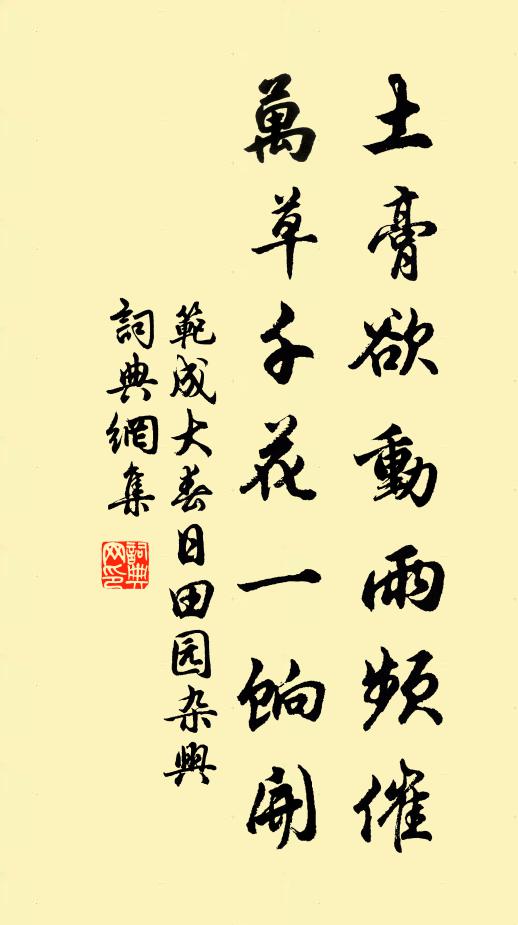 土膏欲動雨頻催
萬草千花一餉開
範成大春日田园杂興
詞典網集
詞典网印